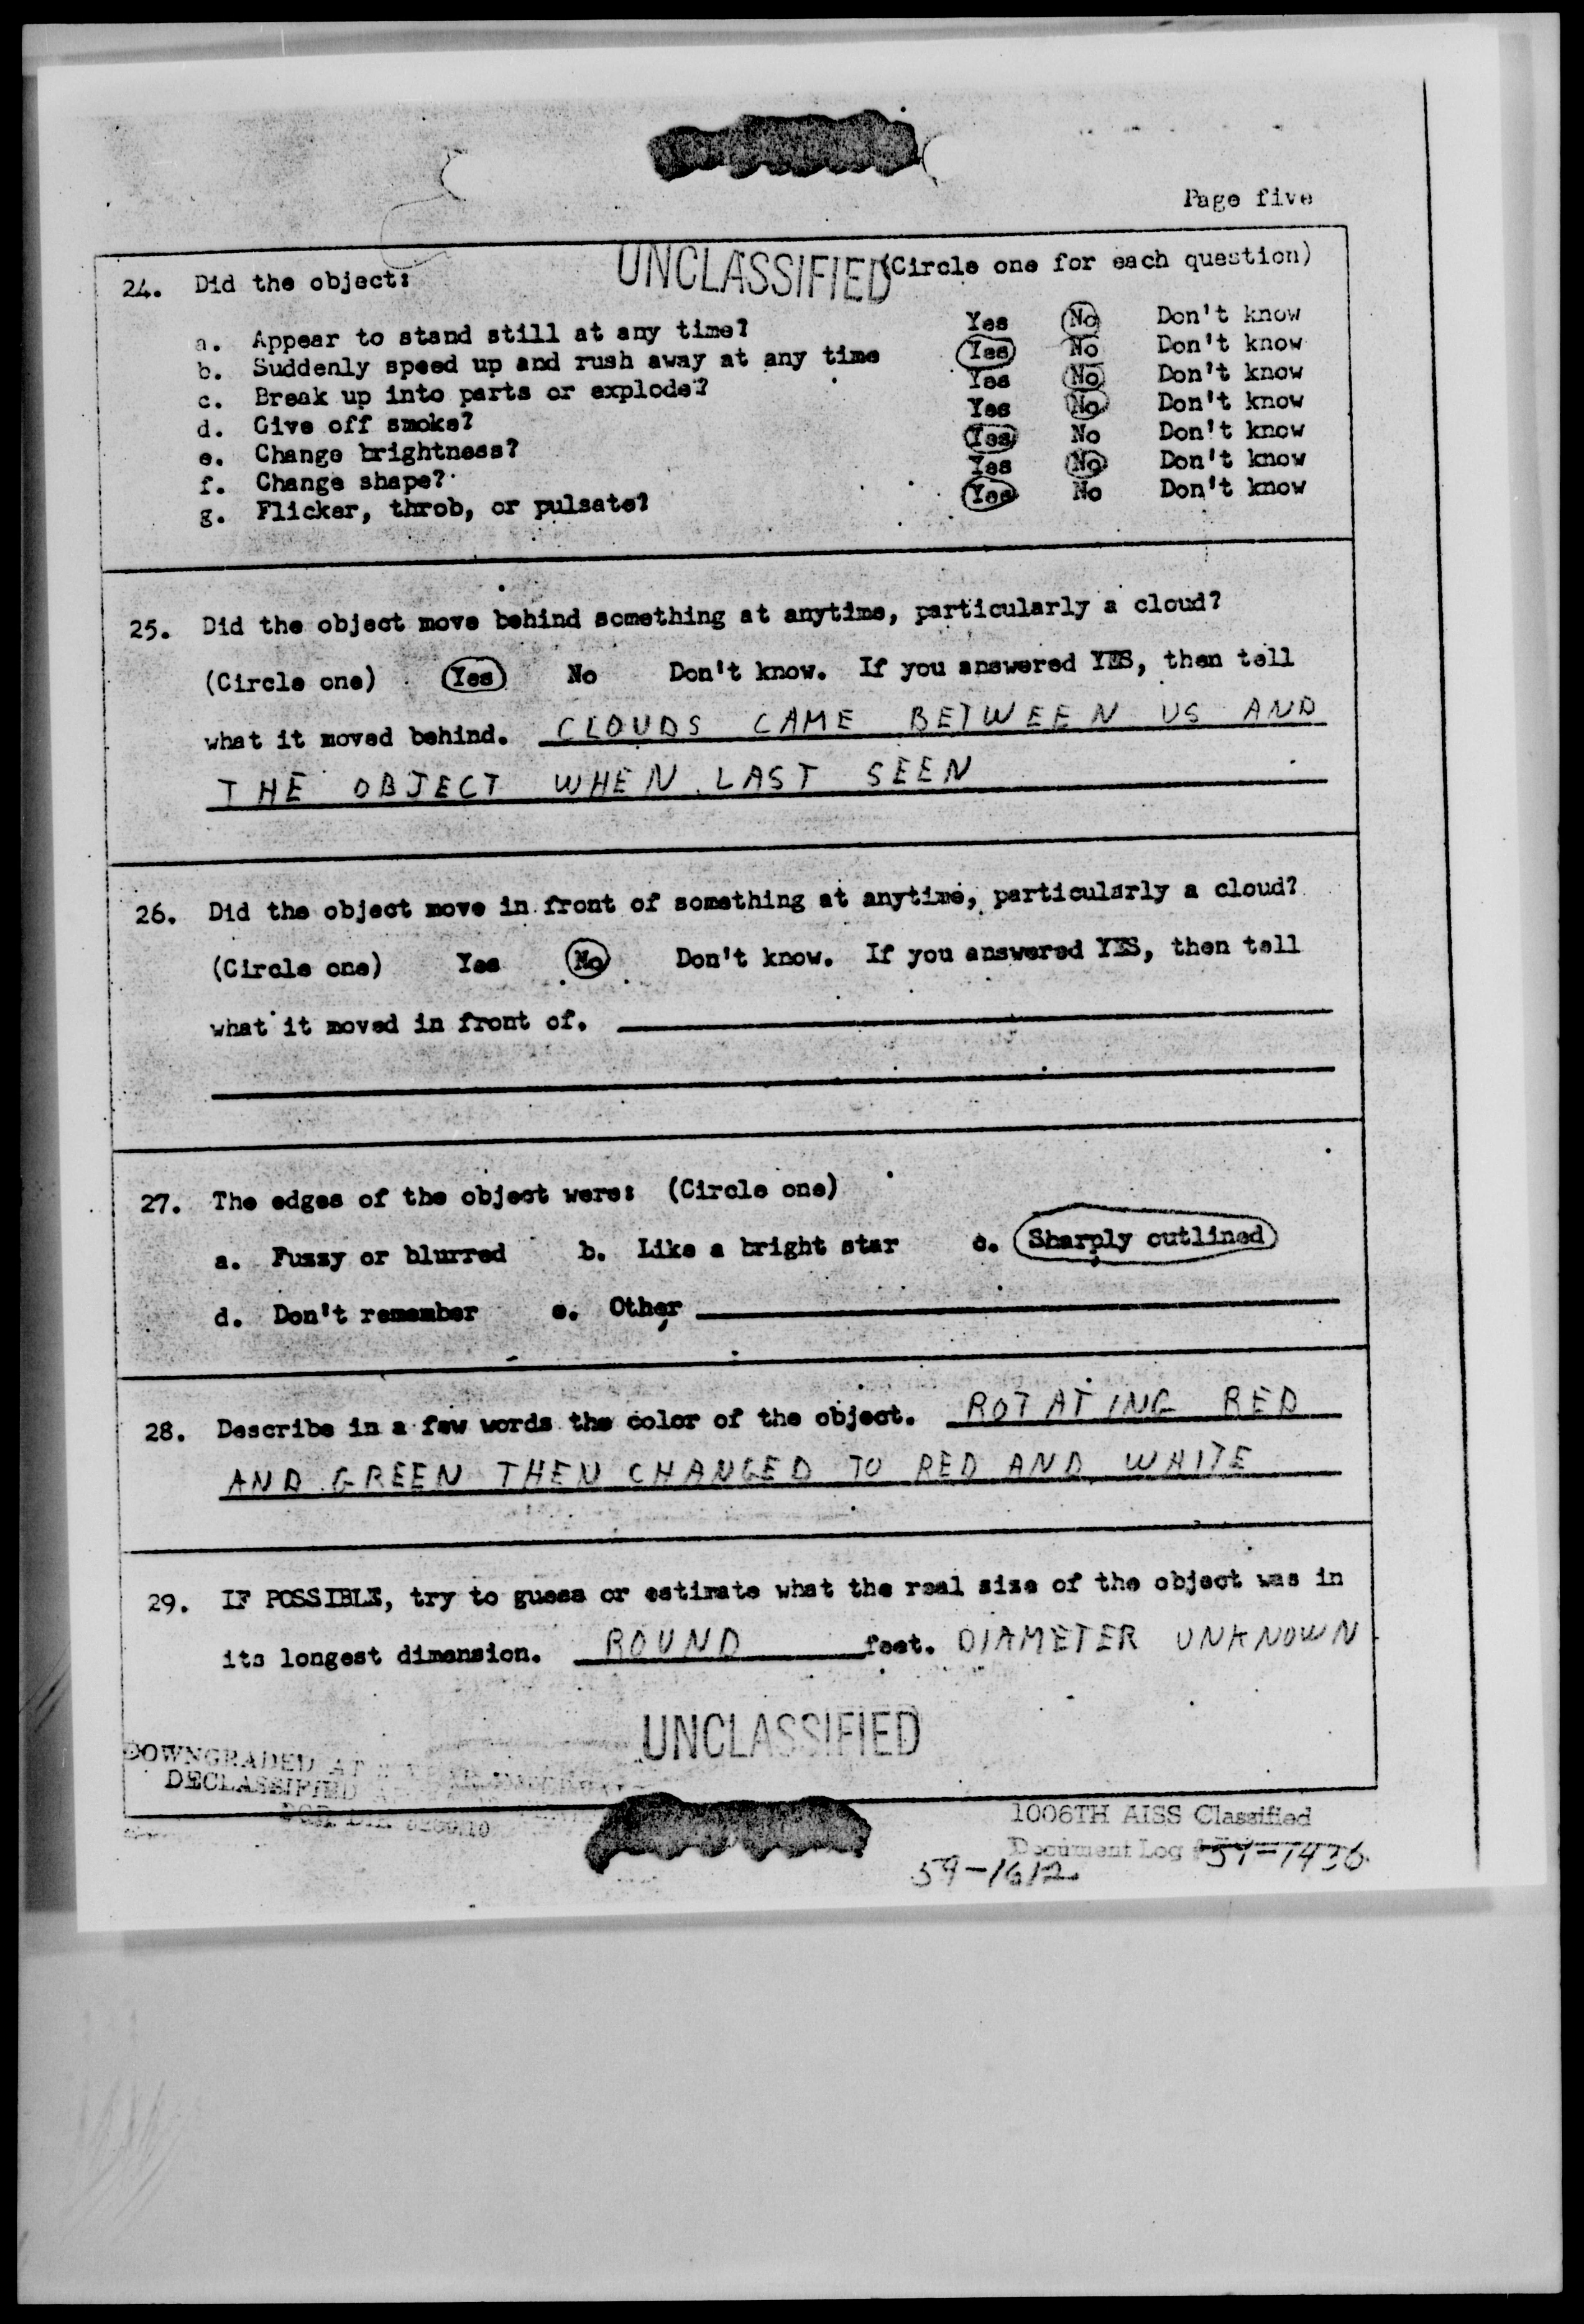 Page five
UNCLASSIFIED
24. Did the object: (Circle one for each question)
a. Appear to stand still at any time? Yes No Don't know
b. Suddenly speed up and rush away at any time Yes No Don't know
c. Break up into parts or explode? Yes No Don't know
d. Give off smoke? Yes No Don't know
e. Change brightness? Yes No Don't know
f. Change shape? Yes No Don't know
g. Flicker, throb, or pulsate? Yes No Don't know
25. Did the object move behind something at anytime, particularly a cloud?
(Circle one) Yes No Don't know. If you answered YES, then tell
what it moved behind. CLOUDS CAME BETWEEN US AND
THE OBJECT WHEN LAST SEEN
26. Did the object move in front of something at anytime, particularly a cloud?
(Circle one) Yes No Don't know. If you answered YES, then tell
what it moved in front of.
27. The edges of the object were: (Circle one)
a. Fuzzy or blurred b. Like a bright star c. Sharply outlined
d. Don't remember e. Other
28. Describe in a few words the color of the object. ROTATING RED
AND GREEN THEN CHANGED TO RED AND WHITE
29. IF POSSIBLE, try to guess or estimate what the real size of the object was in
its longest dimension. ROUND feet. DIAMETER UNKNOWN
UNCLASSIFIED
DOWNGRADED AT
DECLASSIFIED
1006TH AISS Classified
Document Log 59-1436
59-1612